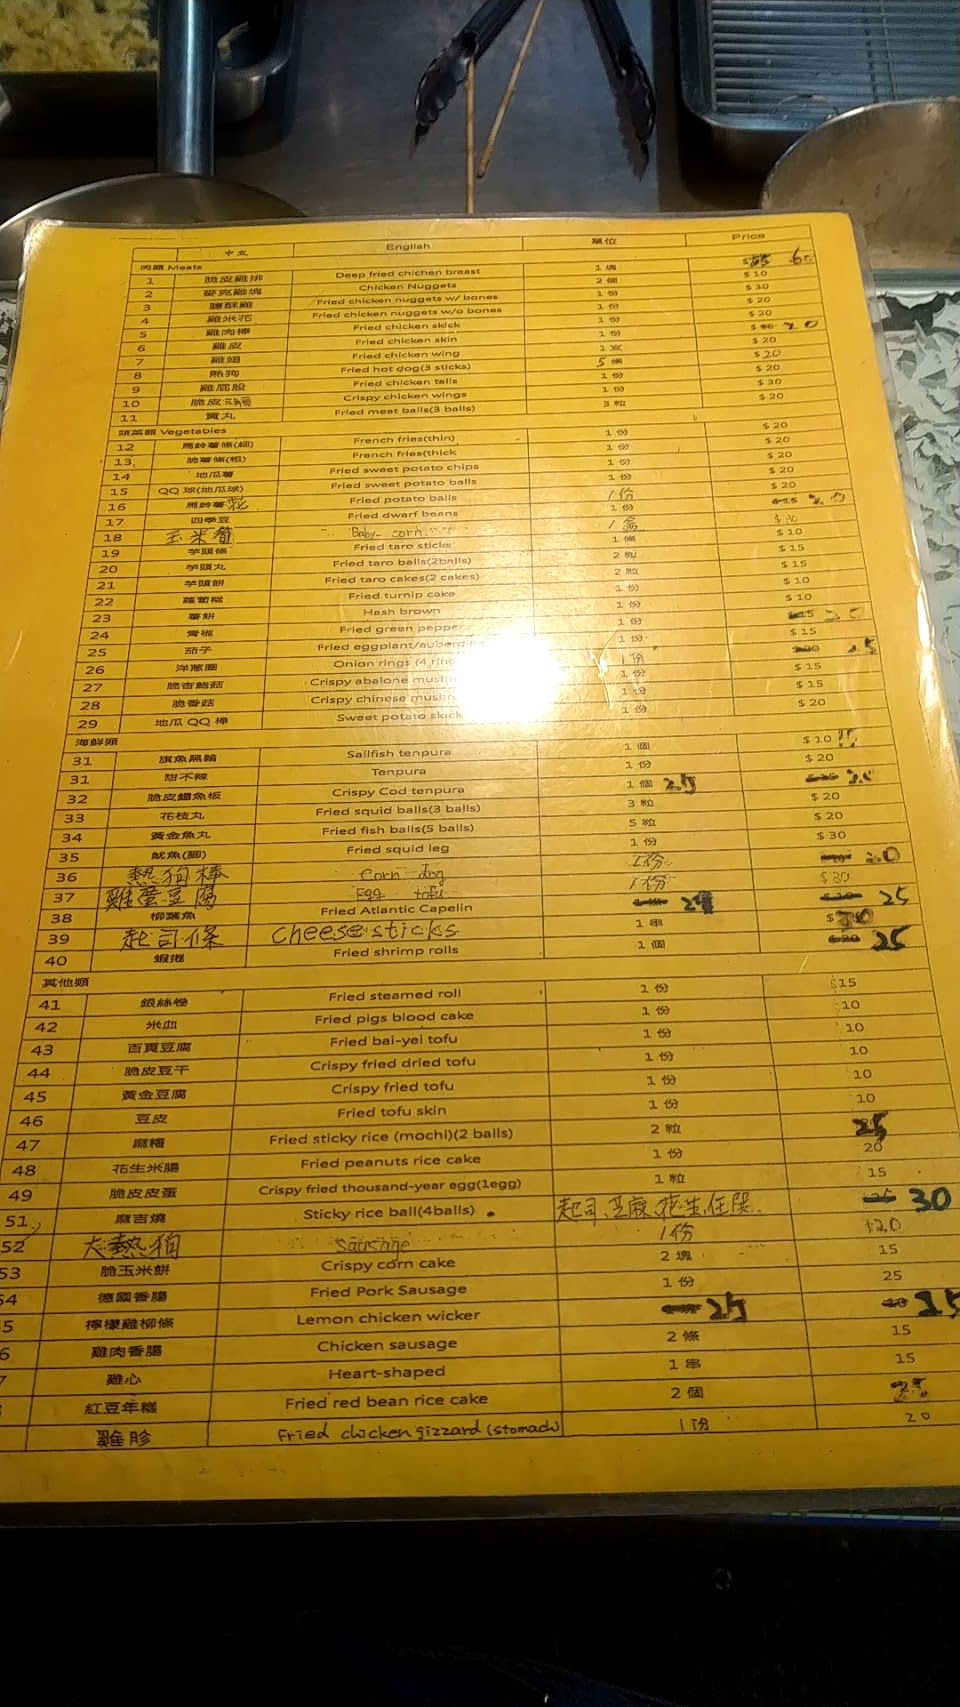 中文 English 單位 Price
肉類 Meats
1 脆皮雞排 Deep fried chichen breast 1 塊 60
2 麥克雞塊 Chicken Nuggets 2 個 $10
3 鹽酥雞 Fried chicken nuggets w/ bones 1 份 $30
4 雞米花 Fried chicken nuggets w/o bones 1 份 $20
5 雞肉棒 Fried chicken skick 1 份 $20
6 雞皮 Fried chicken skin 1 份
7 雞翅 Fried chicken wing 1 支 $20
8 熱狗 Fried hot dog(3 sticks) 5 條 $20
9 雞屁股 Fried chicken tails 1 份 $20
10 脆皮 Crispy chicken wings 1 份 $30
11 貢丸 Fried meat balls(3 balls) 3 粒 $20
蔬菜類 Vegetables
12 馬鈴薯條(細) French fries(thin) 1 份 $20
13 脆薯條(粗) French fries(thick 1 份 $20
14 地瓜薯 Fried sweet potato chips 1 份 $20
15 QQ 球(地瓜球) Fried sweet potato balls 1 份 $20
16 馬鈴薯花 Fried potato balls 1份 $20
17 四季豆 Fried dwarf beans 1 份
18 玉米筍 Baby-corn 1盒 $30
19 芋頭條 Fried taro sticks 1 條 $10
20 芋頭丸 Fried taro balls(2balls) 2 粒 $15
21 芋頭餅 Fried taro cakes(2 cakes) 2 粒 $15
22 蘿蔔糕 Fried turnip cake 1 份 $10
23 薯餅 Hash brown 1 份 $10
24 青椒 Fried green pepper 1 份
25 茄子 Fried eggplant/auberg 1 份 $15
26 洋蔥圈 Onion rings (4 rin 1份
27 脆杏鮑菇 Crispy abalone mush 1 份 $15
28 脆香菇 Crispy chinese mush 1 份 $15
29 地瓜 QQ 棒 Sweet potato skick 1 份 $20
海鮮類
31 旗魚黑輪 Sailfish tenpura 1 個 $10
31 甜不辣 Tenpura 1 份 $20
32 脆皮鱈魚板 Crispy Cod tenpura 1 個
33 花枝丸 Fried squid balls(3 balls) 3 粒 $20
34 黃金魚丸 Fried fish balls(5 balls) 5 粒 $20
35 魷魚(腳) Fried squid leg 1 份 $30
36 熱狗棒 Corn dog 1份 20
37 雞蛋豆腐 Egg tofu 1份 $30
38 柳葉魚 Fried Atlantic Capelin 25
39 起司條 Cheese sticks 1 串
40 蝦捲 Fried shrimp rolls 1 個 25
其他類
41 銀絲卷 Fried steamed roll 1 份 $15
42 米血 Fried pigs blood cake 1 份 10
43 百頁豆腐 Fried bai-yei tofu 1 份 10
44 脆皮豆干 Crispy fried dried tofu 1 份 10
45 黃金豆腐 Crispy fried tofu 1 份 10
46 豆皮 Fried tofu skin 1 份 10
47 麻糬 Fried sticky rice (mochi)(2 balls) 2 粒 25
48 花生米腸 Fried peanuts rice cake 1 份 20
49 脆皮皮蛋 Crispy fried thousand-year egg(1egg) 1 粒 15
51 麻吉燒 Sticky rice ball(4balls) 起司.芝麻.花生.任選. 30
52 大熱狗 Sausage 1份 $20
53 脆玉米餅 Crispy corn cake 2 塊 15
54 德國香腸 Fried Pork Sausage 1 份 25
5 檸檬雞柳條 Lemon chicken wicker
6 雞肉香腸 Chicken sausage 2 條 15
7 雞心 Heart-shaped 1 串 15
紅豆年糕 Fried red bean rice cake 2 個
雞胗 Fried chicken gizzard (stomach) 1份 20